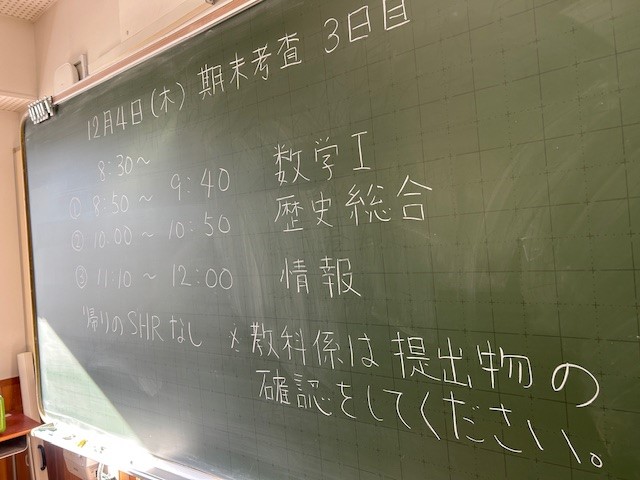 12月4日(木) 期末考査 3日目
8:30~
① 8:50 ~ 9:40 数学I
② 10:00 ~ 10:50 歴史総合
③ 11:10 ~ 12:00 情報
帰りのSHRなし
※教科係は提出物の
確認をしてください。